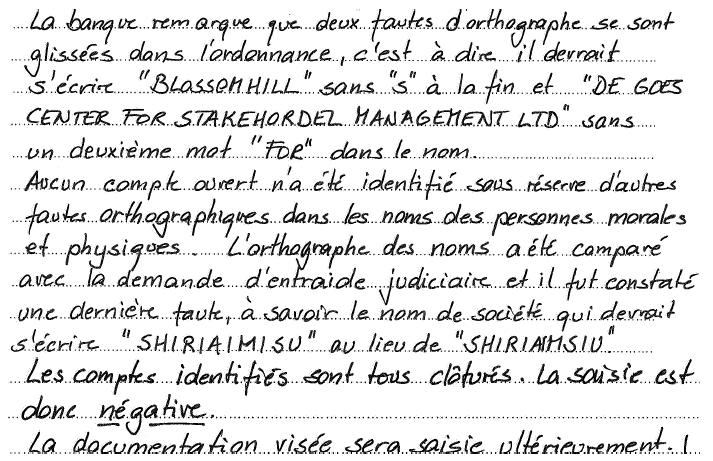 La banque remarque que deux fautes d'orthographe se sont
glissées dans l'ordonnance, c'est à dire il devrait
s'écrire "BLOSSOMHILL" sans "s" à la fin et "DE GOES
CENTER FOR STAKEHORDEL MANAGEMENT LTD" sans
un deuxième mot "FOR" dans le nom.
Aucun compte ouvert n'a été identifié sous réserve d'autres
fautes orthographiques dans les noms des personnes morales
et physiques. L'orthographe des noms a été comparé
avec la demande d'entraide judiciaire et il fut constaté
une dernière faute, à savoir le nom de société qui devrait
s'écrire "SHIRIAIMISU" au lieu de "SHIRIAIMSIU".
Les comptes identifiés sont tous clôturés. La saisie est
donc négative.
La documentation visée sera saisie ultérieurement.